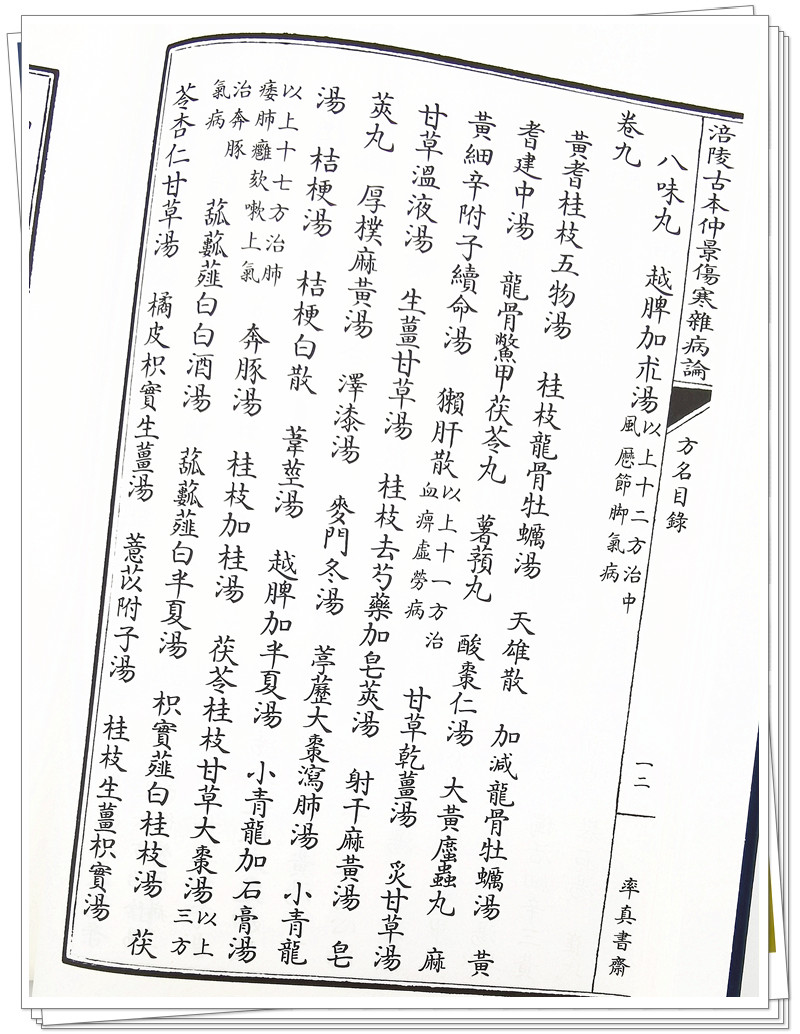 涪陵古本仲景傷寒雜病論 方名目錄 一二 率真書齋
八味丸 越脾加朮湯 以上十二方治中風歷節脚氣病
卷九
黃耆桂枝五物湯 桂枝龍骨牡蠣湯 天雄散 加減龍骨牡蠣湯 黃
耆建中湯 龍骨鱉甲茯苓丸 薯蕷丸 酸棗仁湯 大黃䗪蟲丸 麻
黃細辛附子續命湯 獺肝散 以上十一方治血痺虛勞病 甘草乾薑湯 炙甘草湯
甘草溫液湯 生薑甘草湯 桂枝去芍藥加皂莢湯 射干麻黃湯 皂
莢丸 厚樸麻黃湯 澤漆湯 麥門冬湯 葶藶大棗瀉肺湯 小青龍
湯 桔梗湯 桔梗白散 葦莖湯 越脾加半夏湯 小青龍加石膏湯
以上十七方治肺痿肺癰欬嗽上氣 奔豚湯 桂枝加桂湯 茯苓桂枝甘草大棗湯 以上三方
治奔豚氣病 菰蓏薤白白酒湯 菰蓏薤白半夏湯 枳實薤白桂枝湯 茯
苓杏仁甘草湯 橘皮枳實生薑湯 薏苡附子湯 桂枝生薑枳實湯